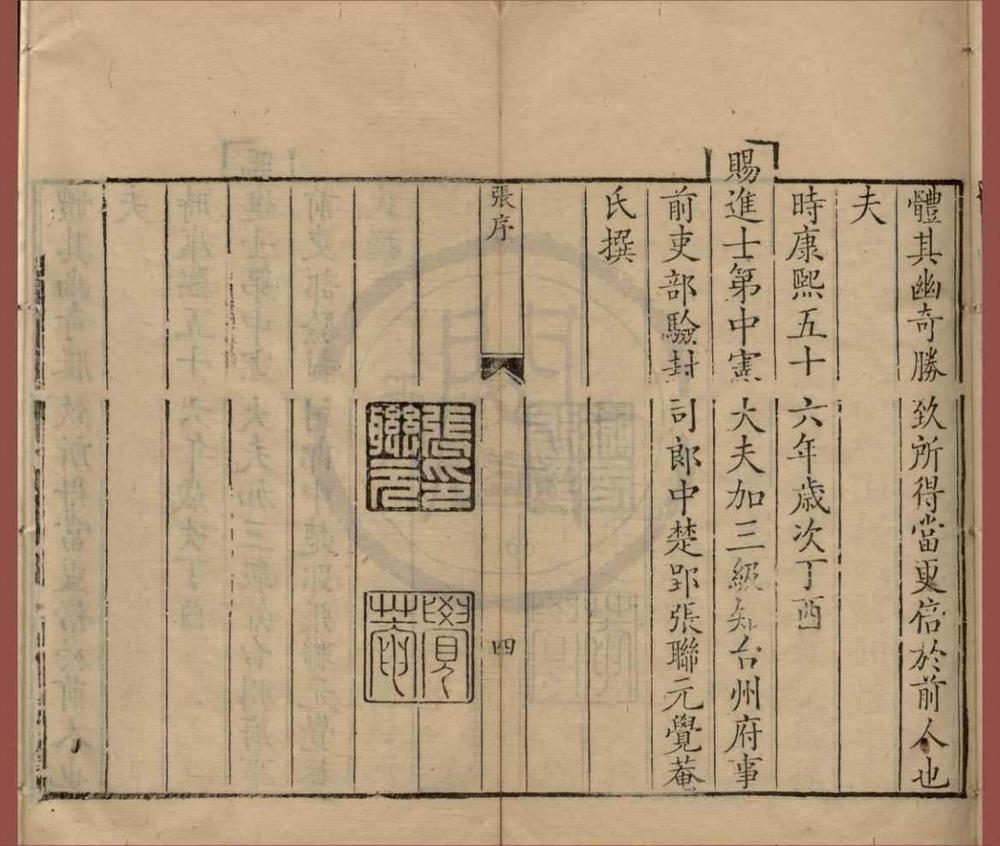 體其幽奇勝致所得當更倍於前人也
夫
時康熙五十六年歲次丁酉
賜進士第中憲大夫加三級知台州府事
前吏部驗封司郎中楚郢張聯元覺菴
氏撰
張序
四
張聯元印
覺菴